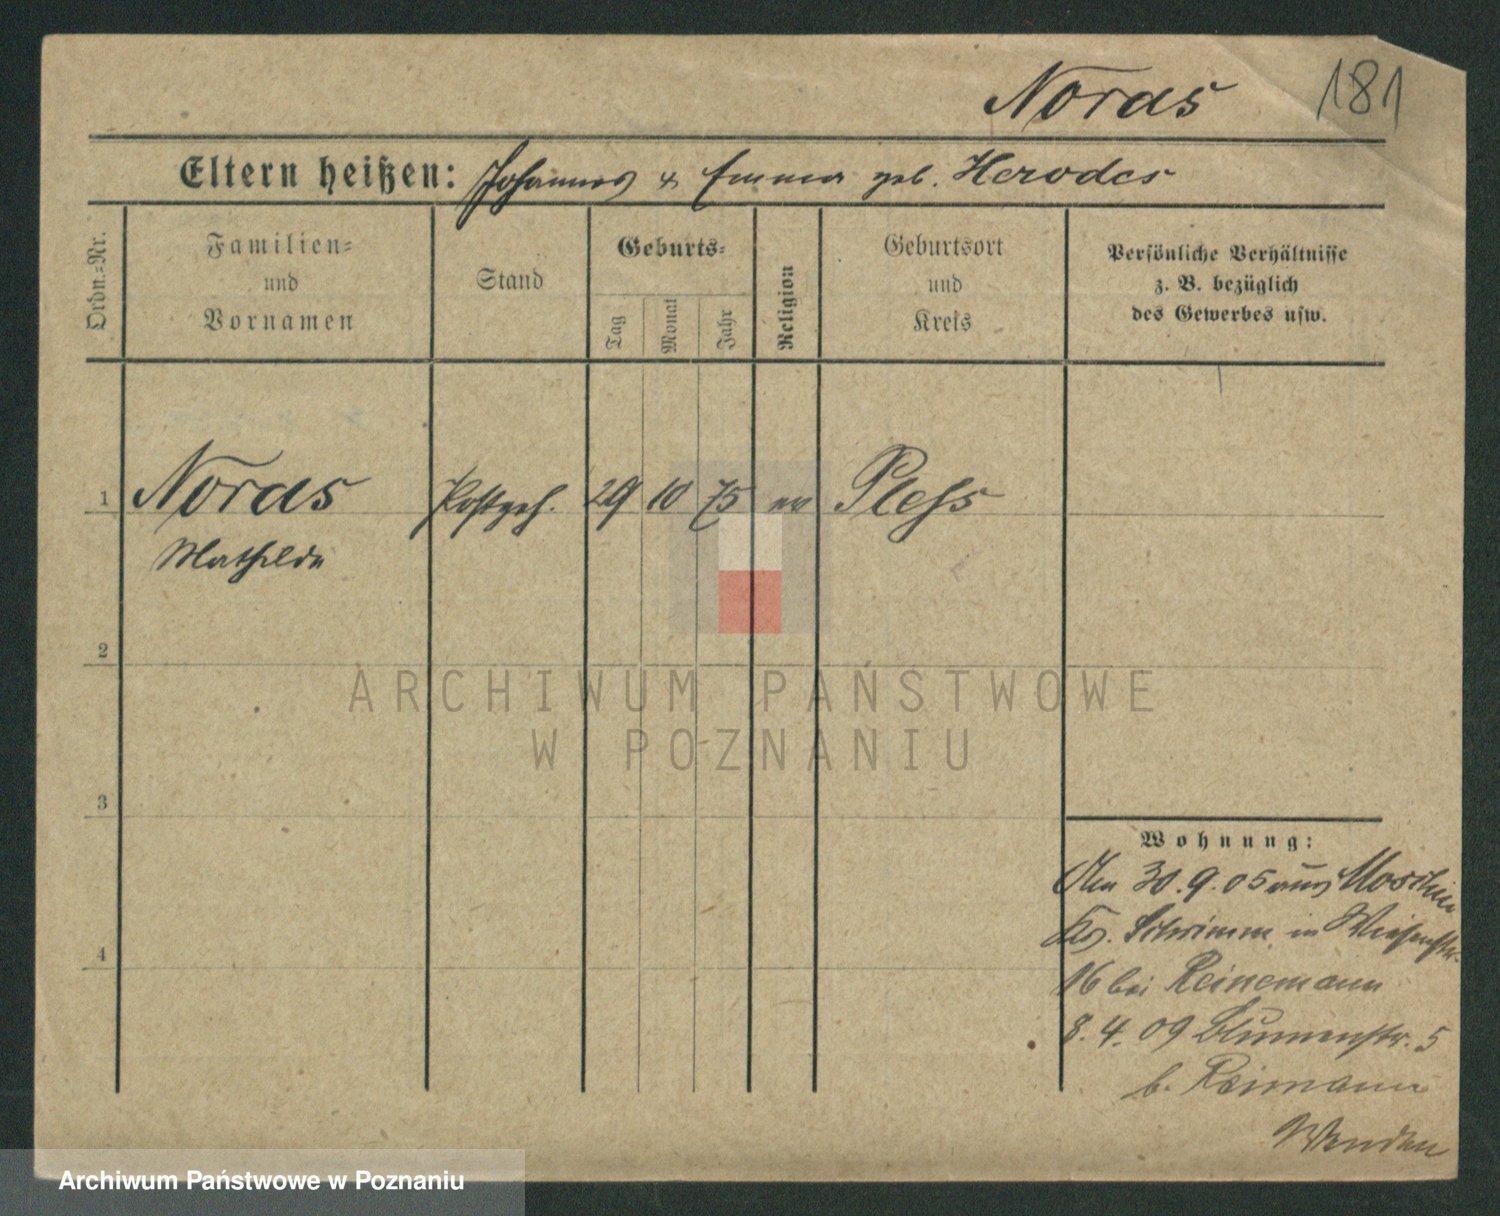 Noras 181
Eltern heißen: Johannes & Emma geb. Herodes
Ordn.=Nr.
Familien=
und
Vornamen
Stand
Geburts=
Tag
Monat
Jahr
Religion
Geburtsort
und
Kreis
Persönliche Verhältnisse
z. B. bezüglich
des Gewerbes usw.
1 Noras Postgeh. 29 10 75 ev Pleß
Mathilde
2
ARCHIWUM PAŃSTWOWE
W POZNANIU
3
Wohnung:
30.9.05 aus
Krs. Schrimm in Wiesenstr.
4
16 bei Reinemann
8.4.09 Blumenstr. 5
b. Reimann
Archiwum Państwowe w Poznaniu